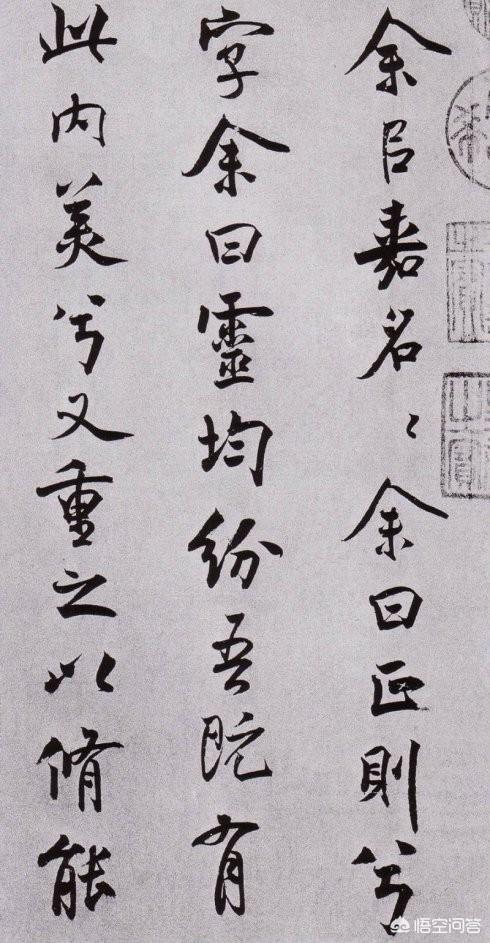 余㠯嘉名〻余曰正則兮
字余曰靈均紛吾既有
此内美兮又重之以脩能
悟空问答